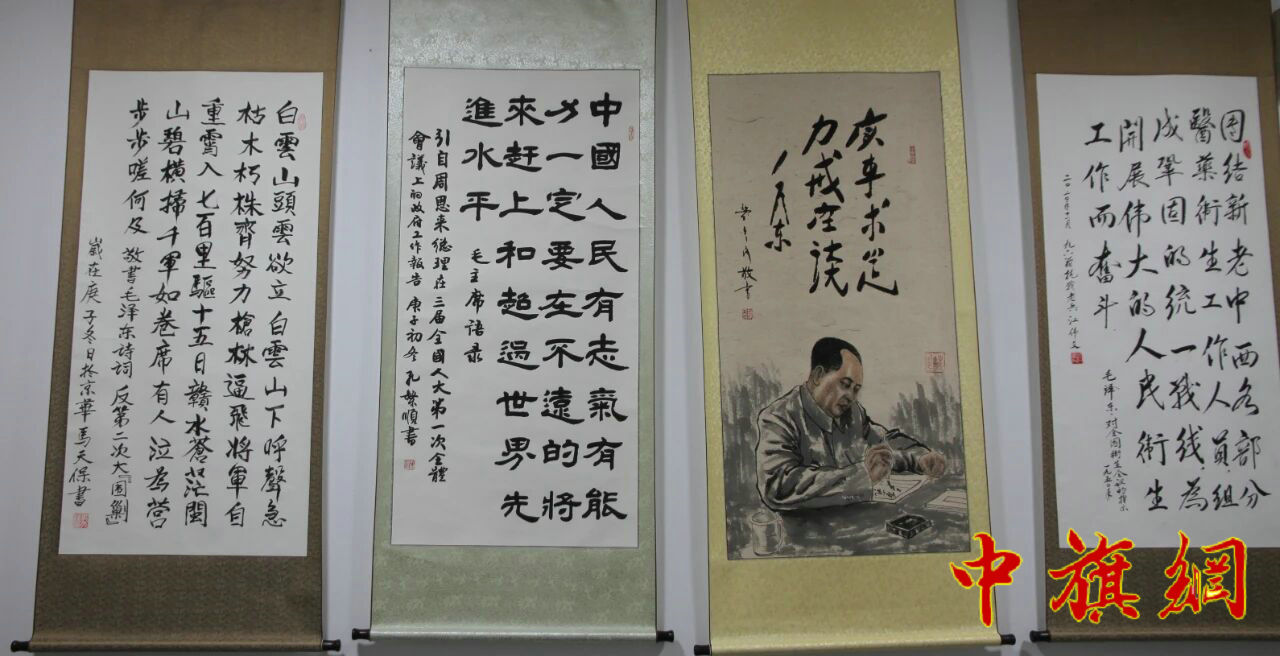 白雲山頭雲欲立白雲山下呼聲急
枯木朽株齊努力槍林逼飛將軍自
重霄入七百里驅十五日贛水蒼茫閩
山碧橫掃千軍如卷席有人泣為營
步步嗟何及 敬書毛泽东詩詞 反第二次大『围剿』
歲在庚子冬日於京華馬天保書
中國人民有志氣有能
力一定要在不遠的將
來赶上和超過世界先
進水平 毛主席語录
引自周恩来總理在三届全國人大第一次全體
會議上的政府工作報告 庚子初冬孔繁順書
实事求是
力戒空谈
毛泽东
敬書
团结新老中西各部分
醫藥衛生工作人員組
成鞏固的统一战线,為
開展伟大的人民衛生
工作而奮斗
毛泽东:对全国衛生会议的指示
一九五〇年
中旗網